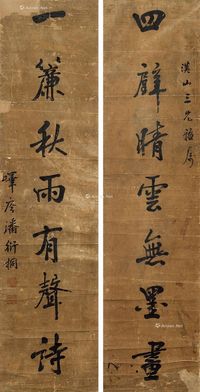 漢山三兄雅屬
四壁晴雲無墨畫
一簾秋雨有聲詩
嶧琴潘衍桐